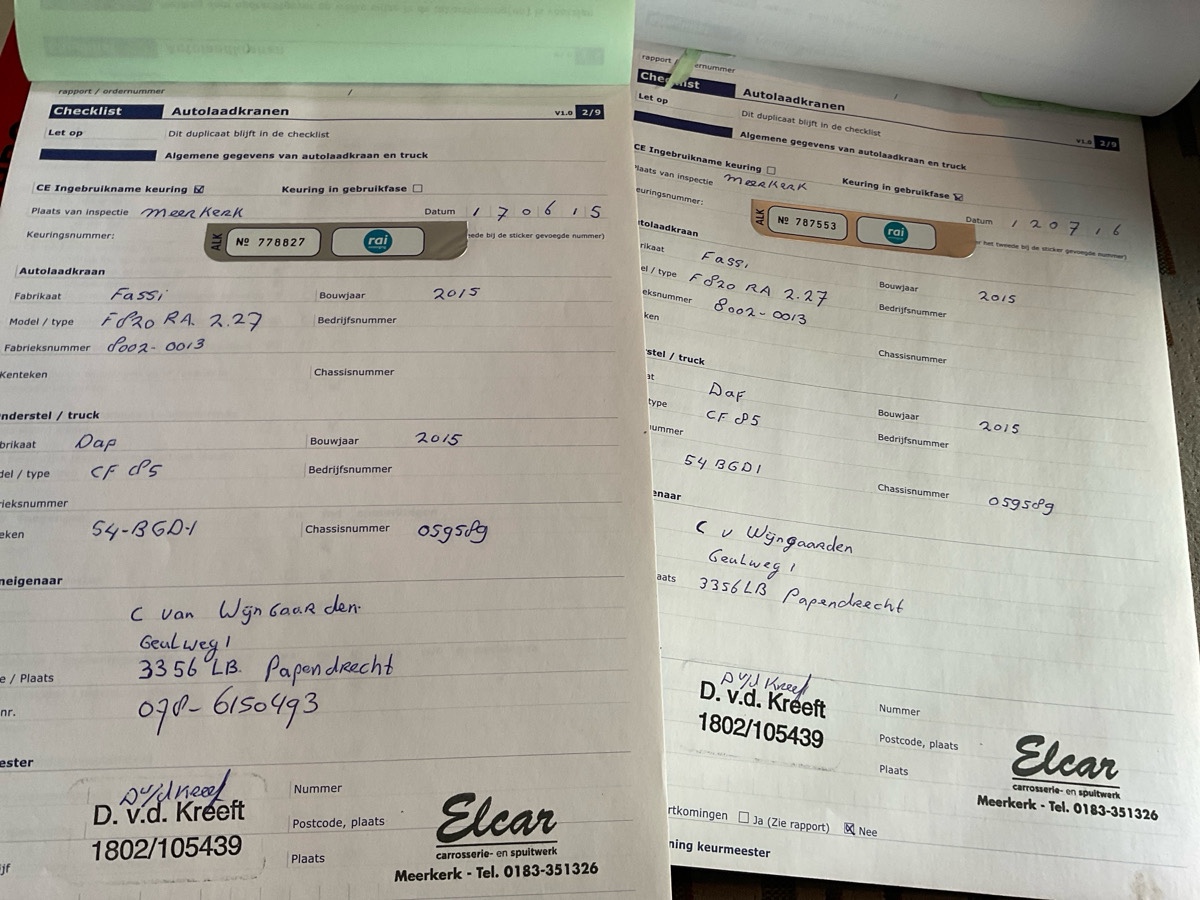 rapport / ordernummer /
Checklist Autolaadkranen V1.0 2/9
Let op Dit duplicaat blijft in de checklist
Algemene gegevens van autolaadkraan en truck
CE Ingebruikname keuring ☒ Keuring in gebruikfase ☐
Plaats van inspectie Meerkerk Datum 1 7 0 6 1 5
Keuringsnummer: ALK Nº 778827 rai ede bij de sticker gevoegde nummer)
Autolaadkraan
Fabrikaat Fassi Bouwjaar 2015
Model / type F820 RA. 2.27 Bedrijfsnummer
Fabrieksnummer 8002-0013
Kenteken Chassisnummer
nderstel / truck
brikaat Daf Bouwjaar 2015
del / type CF 85 Bedrijfsnummer
rieksnummer
eken 54-BGD-1 Chassisnummer 059589
neigenaar
C van Wijngaarden.
Geulweg 1
e / Plaats 3356 LB. Papendrecht
nr. 078-6150493
ester
D v/d Kreef Nummer
D. v.d. Kreeft
1802/105439 Postcode, plaats
jf Plaats
Elcar
carrosserie- en spuitwerk
Meerkerk - Tel. 0183-351326
rapport / ernummer /
Checklist Autolaadkranen V1.0 2/9
Let op Dit duplicaat blijft in de checklist
Algemene gegevens van autolaadkraan en truck
CE Ingebruikname keuring ☐ Keuring in gebruikfase ☒
laats van inspectie Meerkerk Datum 1 2 0 7 1 6
euringsnummer: ALK Nº 787553 rai er het tweede bij de sticker gevoegde nummer)
utolaadkraan
rikaat Fassi Bouwjaar 2015
el / type F820 RA 2.27 Bedrijfsnummer
eksnummer 8002-0013
ken Chassisnummer
stel / truck
at Daf Bouwjaar 2015
type CF 85 Bedrijfsnummer
ummer
54 BGD1 Chassisnummer 059589
enaar
C v Wijngaarden
Geulweg 1
aats 3356 LB Papendrecht
D v/d Kreef
D. v.d. Kreeft Nummer
1802/105439 Postcode, plaats
Plaats
Elcar
carrosserie- en spuitwerk
Meerkerk - Tel. 0183-351326
rtkomingen ☐ Ja (Zie rapport) ☒ Nee
ning keurmeester